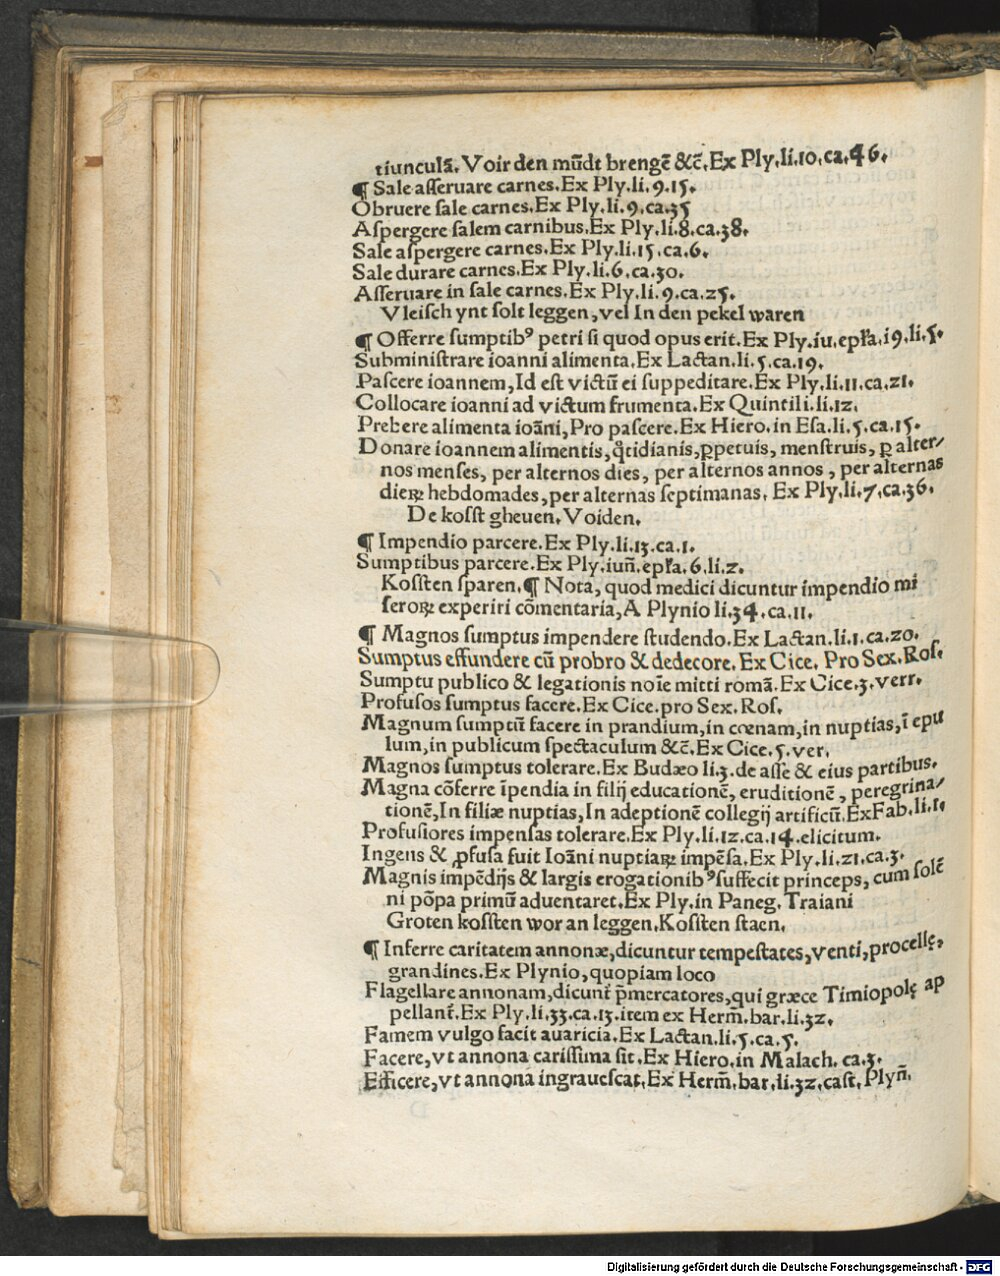 tiunculā. Voir den mūdt brengē &c̄. Ex Ply. li. 10. ca. 46.
¶ Sale asseruare carnes. Ex Ply. li. 9. 15.
Obruere sale carnes. Ex Ply. li. 9. ca. 35
Aspergere salem carnibus. Ex Ply. li. 8. ca. 38.
Sale aspergere carnes. Ex Ply. li. 15. ca. 6.
Sale durare carnes. Ex Ply. li. 6. ca. 30.
Asseruare in sale carnes. Ex Ply. li. 9. ca. 25.
Vleisch ynt solt leggen, vel In den pekel waren
¶ Offerre sumptibꝰ petri si quod opus erit. Ex Ply. iu. epr̄a. 19. li. 5.
Subministrare ioanni alimenta. Ex Lactan. li. 5. ca. 19.
Pascere ioannem, Id est victū ei suppeditare. Ex Ply. li. 11. ca. 21.
Collocare ioanni ad victum frumenta. Ex Quintili. li. 12.
Prebere alimenta ioāni, Pro pascere. Ex Hiero. in Esa. li. 5. ca. 15.
Donare ioannem alimentis, q̄tidianis, ꝑpetuis, menstruis, ꝑ alter/
nos menses, per alternos dies, per alternos annos, per alternas
dieꝝ hebdomades, per alternas septimanas. Ex Ply. li. 7. ca. 36.
De kosst gheuen. Voiden.
¶ Impendio parcere. Ex Ply. li. 13. ca. 1.
Sumptibus parcere. Ex Ply. iun̄. epr̄a. 6. li. 2.
Kossten sparen. ¶ Nota, quod medici dicuntur impendio mi
seroꝝ experiri cōmentaria, A Plynio li. 34. ca. 11.
¶ Magnos sumptus impendere studendo. Ex Lactan. li. 1. ca. 20.
Sumptus effundere cū probro & dedecore. Ex Cice. Pro Sex. Ros.
Sumptu publico & legationis noīe mitti romā. Ex Cice. 3. verr.
Profusos sumptus facere. Ex Cice. pro Sex. Ros.
Magnum sumptū facere in prandium, in cœnam, in nuptias, ī epu
lum, in publicum spectaculum &c̄. Ex Cice. 5. ver.
Magnos sumptus tolerare. Ex Budæo li. 3. de asse & eius partibus.
Magna cōferre īpendia in filij educationē, eruditionē, peregrina/
tionē, In filiæ nuptias, In adeptionē collegij artificū. Ex Fab. li. 1.
Profusiores impensas tolerare. Ex Ply. li. 12. ca. 14. elicitum.
Ingens & ꝓfusa fuit Ioāni nuptiaꝝ impēsa. Ex Ply. li. 21. ca. 3.
Magnis impēdijs & largis erogationibꝰ suffecit princeps, cum solē
ni pōpa primū aduentaret. Ex Ply. in Paneg. Traiani
Groten kossten wor an leggen. Kossten staen.
¶ Inferre caritatem annonæ, dicuntur tempestates, venti, procellę,
grandines. Ex Plynio, quopiam loco
Flagellare annonam, dicunt̄ p̄mercatores, qui græce Timiopolę ap
pellant̄. Ex Ply. li. 33. ca. 13. item ex Herm̄. bar. li. 32.
Famem vulgo facit auaricia. Ex Lactan. li. 5. ca. 5.
Facere, vt annona carissima sit. Ex Hiero. in Malach. ca. 3.
Efficere, vt annona ingrauescat. Ex Herm̄. bar. li. 32. cast. Plyn̄.
Digitalisierung gefördert durch die Deutsche Forschungsgemeinschaft - DFG